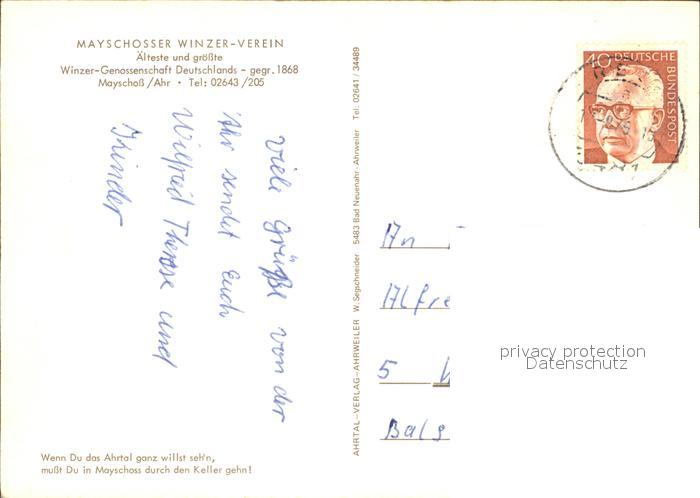 MAYSCHOSSER WINZER-VEREIN
Älteste und größte
Winzer-Genossenschaft Deutschlands - gegr. 1868
Mayschoß/Ahr • Tel: 02643/205
Viele Grüße von der
Ahr sendet Euch
Wilfried Therese und
Kinder
Wenn Du das Ahrtal ganz willst seh'n,
mußt Du in Mayschoss durch den Keller gehn!
AHRTAL-VERLAG-AHRWEILER W. Segschneider 5483 Bad Neuenahr-Ahrweiler Tel. 02641/34489
40 DEUTSCHE
BUNDESPOST
An
Alfre
5
Bals
privacy protection
Datenschutz